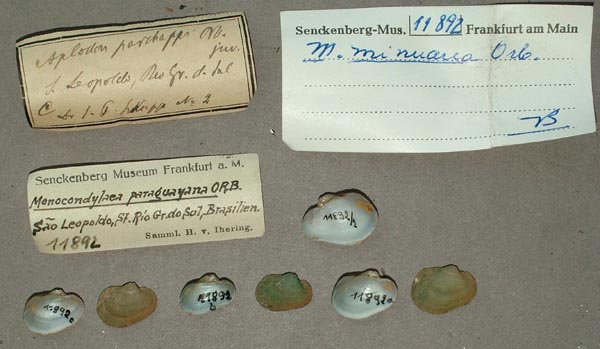 Aplodon parchappi Orb.
juv.
S. Leopoldo, Rio Gr. d. Sul
Senckenberg-Mus. 11892 Frankfurt am Main
M. minuana Orb.
B
Senckenberg Museum Frankfurt a. M.
Monocondylaea paraguayana ORB.
São Leopoldo, St. Rio Gr. do Sul, Brasilien.
11892
Samml. H. v. Ihering.
11892
11892
b
11892a